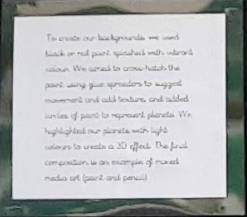 To create our backgrounds we used
black or red paint splashed with vibrant
colour. We aimed to cross-hatch the
paint using glue spreaders to suggest
movement and add texture, and added
circles of paint to represent planets. We
highlighted our planets with light
colours to create a 3D effect. The final
composition is an example of mixed
media art (paint and pencil)